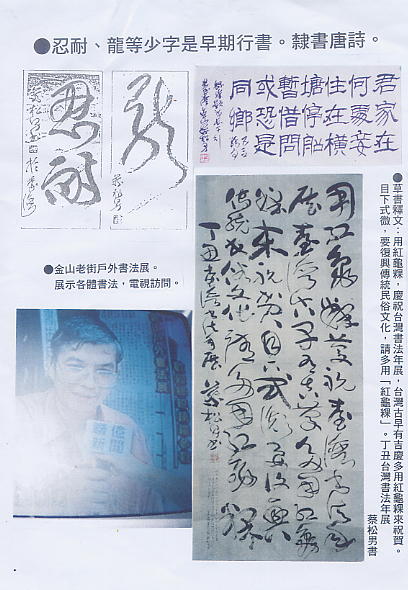 ●忍耐、龍等少字是早期行書。隸書唐詩。
忍耐
龍
君家在
何處妾
住在橫
塘停舩
暫借問
或恐是
同鄉
●草書釋文：用紅龜粿，慶祝台灣書法年展，台灣古早有吉慶多用紅龜粿來祝賀。
目下式微，要復興傳統民俗文化，請多用「紅龜粿」。丁丑台灣書法年展
蔡松男書
用紅龜粿慶祝臺灣書法年
展臺灣古早有吉慶多用紅龜
粿來祝賀目下式微要復興
傳統民俗文化請多用紅龜粿
丁丑臺灣書法年展 蔡松男書
●金山老街戶外書法展。
展示各體書法，電視訪問。
新聞